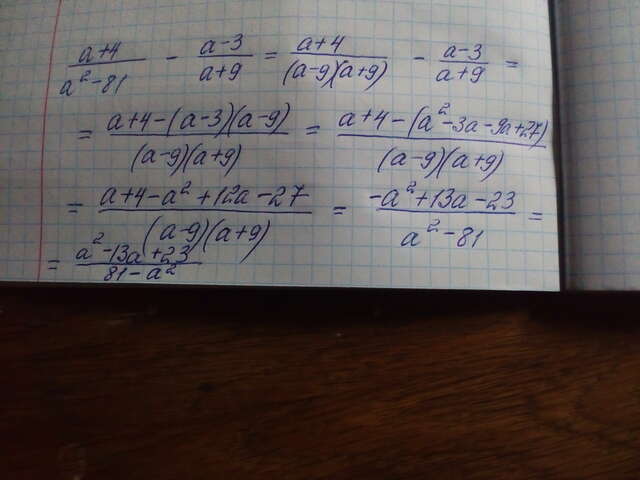 (a+4)/(a²-81) - (a-3)/(a+9) = (a+4)/((a-9)(a+9)) - (a-3)/(a+9) =
= (a+4-(a-3)(a-9))/((a-9)(a+9)) = (a+4-(a²-3a-9a+27))/((a-9)(a+9))
= (a+4-a²+12a-27)/((a-9)(a+9)) = (-a²+13a-23)/(a²-81) =
= (a²-13a+23)/(81-a²)